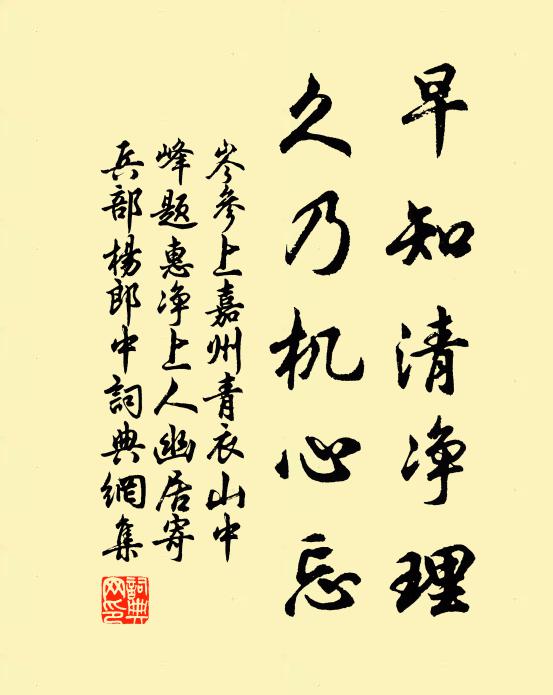 早知清净理
久乃机心忘
岑參上嘉州青衣山中
峰題惠净上人幽居寄
兵部楊郎中詞典網集
詞典网印